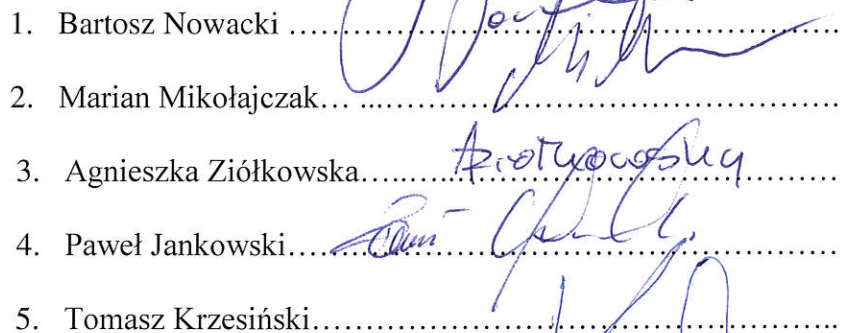 1. Bartosz Nowacki ……………………………………………
2. Marian Mikołajczak… ...……………………………………
3. Agnieszka Ziółkowska…..……………………………………
4. Paweł Jankowski……………………………………………
5. Tomasz Krzesiński……………………………………………..